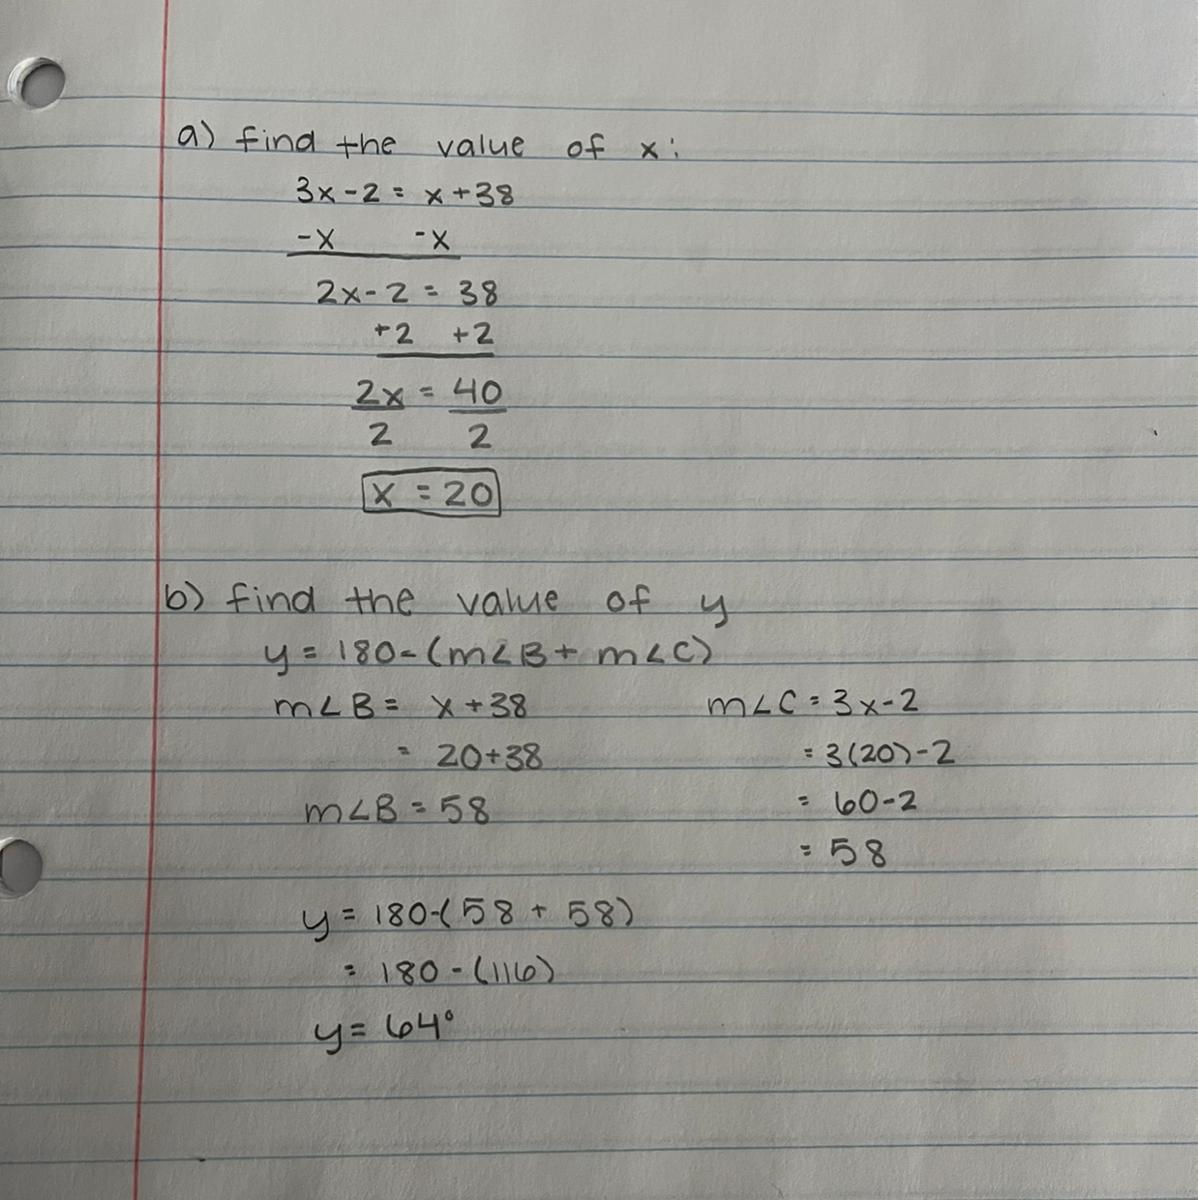 a) find the value of x:
3x-2 = x+38
-x -x
2x-2 = 38
+2 +2
2x = 40
2 2
x = 20
b) find the value of y
y = 180-(m∠B + m∠C)
m∠B = x+38 m∠C = 3x-2
= 20+38 = 3(20)-2
m∠B = 58 = 60-2
= 58
y = 180-(58 + 58)
= 180-(116)
y = 64°